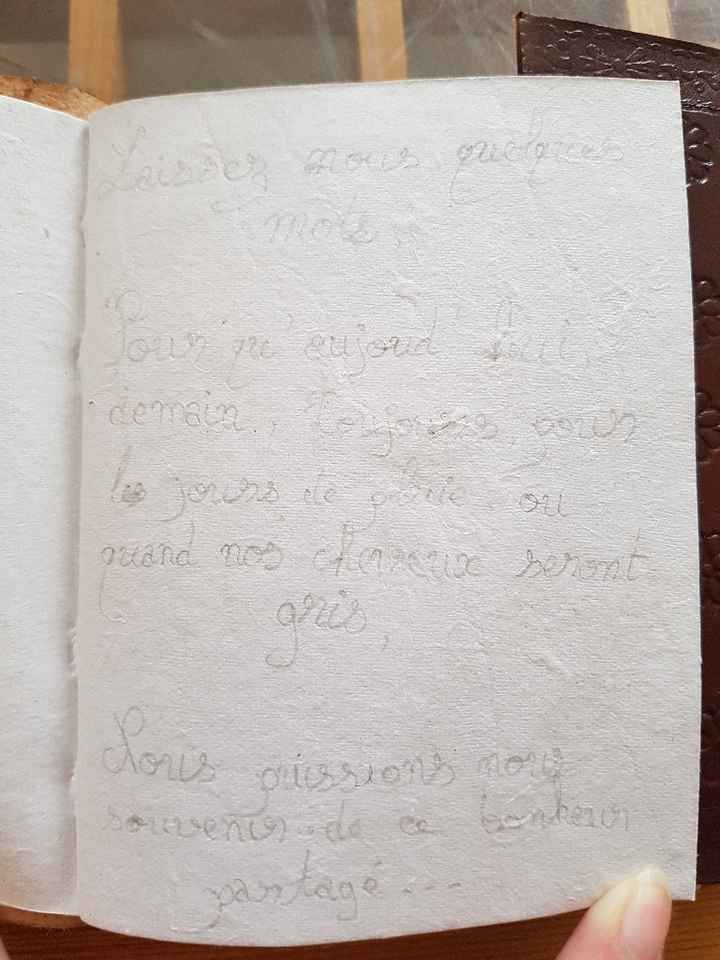 Laissez nous quelques
mots,
Pour qu'aujourd'hui,
demain, toujours, pour
les jours de pluie ou
quand nos cheveux seront
gris,
Nous puissions nous
souvenir de ce bonheur
partagé...